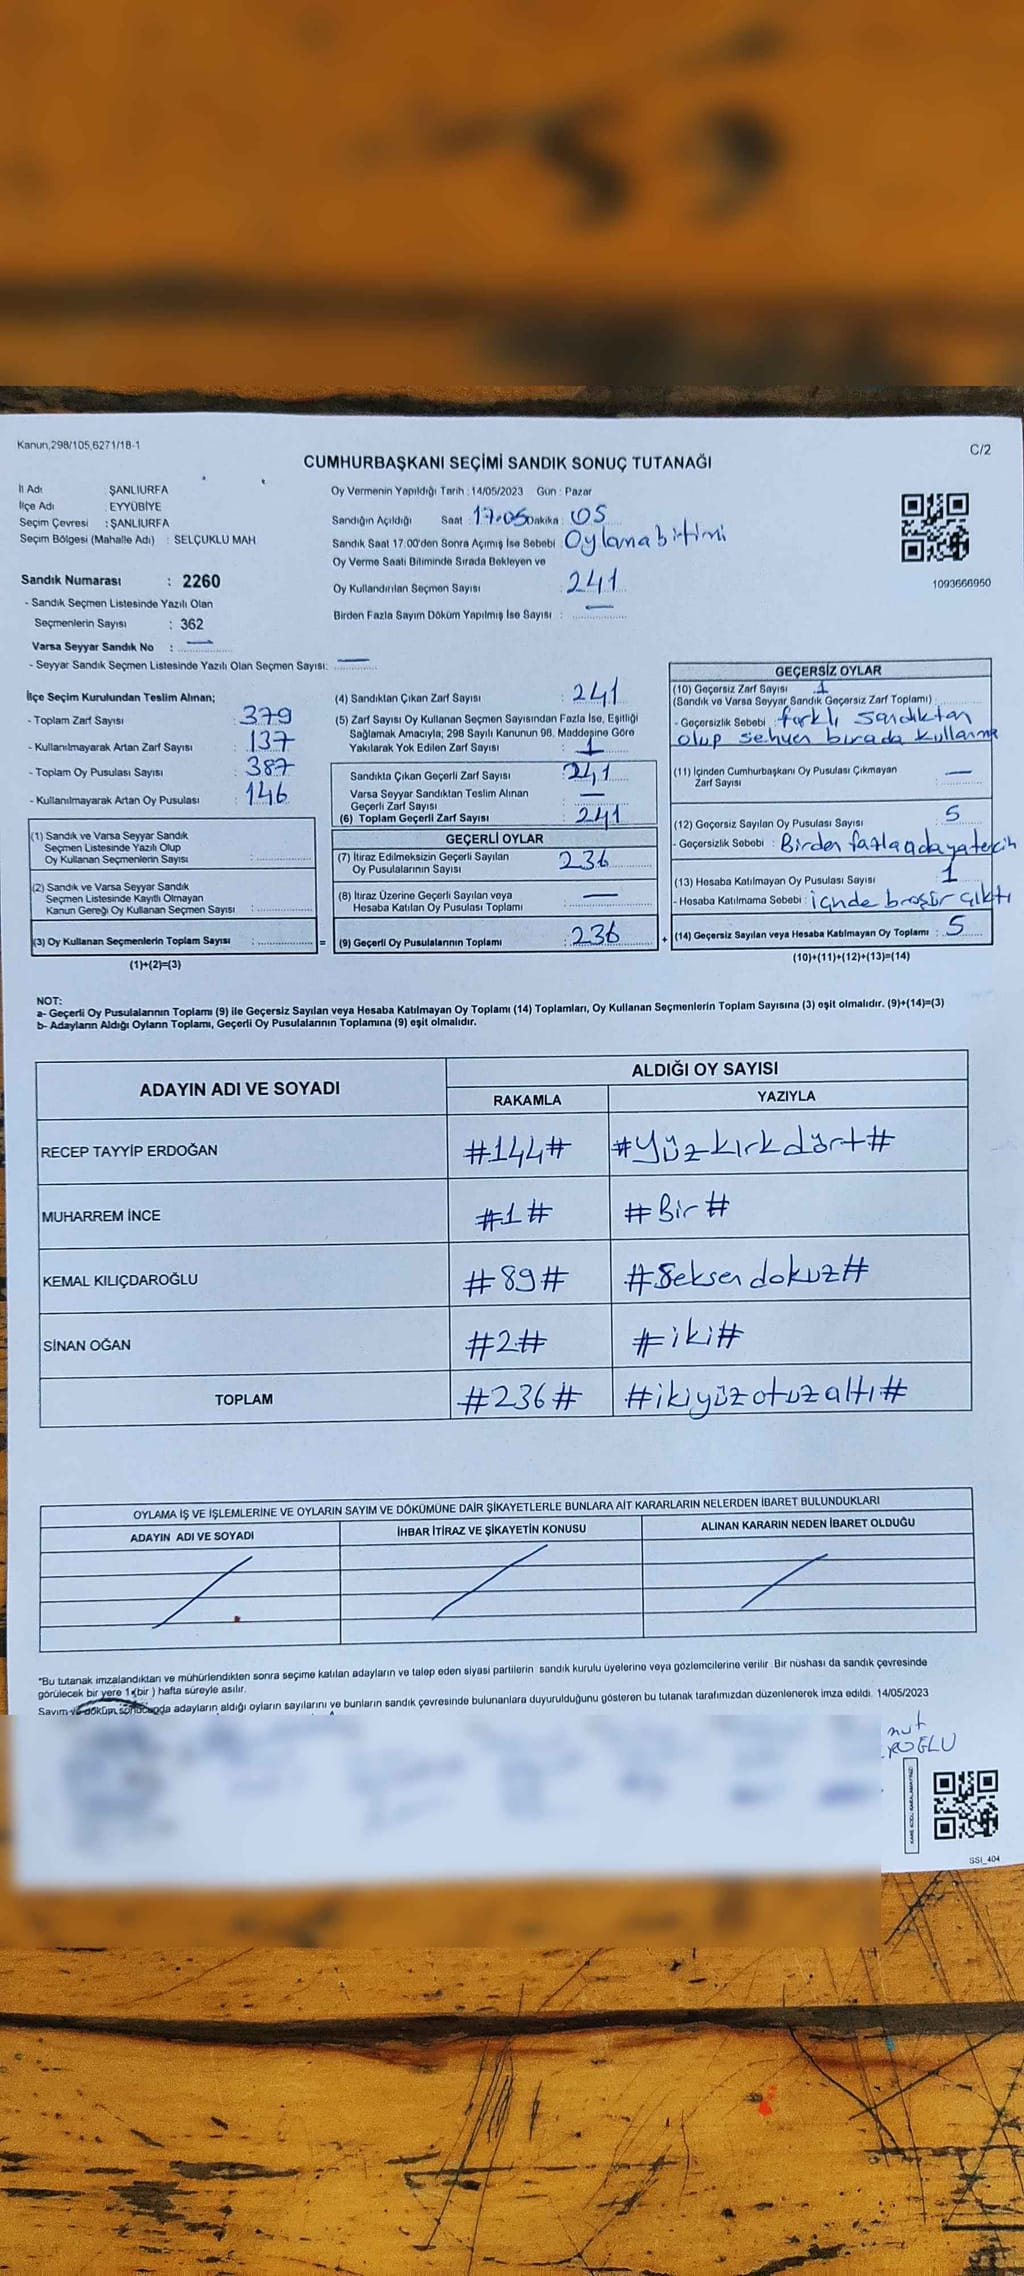 Kanun,298/105,6271/18-1
C/2
CUMHURBAŞKANI SEÇİMİ SANDIK SONUÇ TUTANAĞI
İl Adı : ŞANLIURFA
İlçe Adı : EYYÜBİYE
Seçim Çevresi : ŞANLIURFA
Seçim Bölgesi (Mahalle Adı) : SELÇUKLU MAH
Sandık Numarası : 2260
- Sandık Seçmen Listesinde Yazılı Olan
Seçmenlerin Sayısı : 362
Varsa Seyyar Sandık No : —
- Seyyar Sandık Seçmen Listesinde Yazılı Olan Seçmen Sayısı: —
Oy Vermenin Yapıldığı Tarih : 14/05/2023 Gün : Pazar
Sandığın Açıldığı Saat : 17.05 Dakika : 05
Sandık Saat 17:00'den Sonra Açımış İse Sebebi : Oylama bitimi
Oy Verme Saati Bitiminde Sırada Bekleyen ve
Oy Kullandırılan Seçmen Sayısı : 241
Birden Fazla Sayım Döküm Yapılmış İse Sayısı : —
1093666950
İlçe Seçim Kurulundan Teslim Alınan;
- Toplam Zarf Sayısı : 379
- Kullanılmayarak Artan Zarf Sayısı : 137
- Toplam Oy Pusulası Sayısı : 387
- Kullanılmayarak Artan Oy Pusulası : 146
(1) Sandık ve Varsa Seyyar Sandık
Seçmen Listesinde Yazılı Olup
Oy Kullanan Seçmenlerin Sayısı :
(2) Sandık ve Varsa Seyyar Sandık
Seçmen Listesinde Kayıtlı Olmayan
Kanun Gereği Oy Kullanan Seçmen Sayısı :
(3) Oy Kullanan Seçmenlerin Toplam Sayısı : =
(1)+(2)=(3)
(4) Sandıktan Çıkan Zarf Sayısı : 241
(5) Zarf Sayısı Oy Kullanan Seçmen Sayısından Fazla İse, Eşitliği
Sağlamak Amacıyla; 298 Sayılı Kanunun 98. Maddesine Göre
Yakılarak Yok Edilen Zarf Sayısı : 1
Sandıkta Çıkan Geçerli Zarf Sayısı : 241
Varsa Seyyar Sandıktan Teslim Alınan
Geçerli Zarf Sayısı : —
(6) Toplam Geçerli Zarf Sayısı : 241
GEÇERLİ OYLAR
(7) İtiraz Edilmeksizin Geçerli Sayılan
Oy Pusulalarının Sayısı : 236
(8) İtiraz Üzerine Geçerli Sayılan veya
Hesaba Katılan Oy Pusulası Toplamı : —
(9) Geçerli Oy Pusulalarının Toplamı : 236 +
GEÇERSİZ OYLAR
(10) Geçersiz Zarf Sayısı : 1
(Sandık ve Varsa Seyyar Sandık Geçersiz Zarf Toplamı)
- Geçersizlik Sebebi : farklı sandıktan
olup sehven burada
(11) İçinden Cumhurbaşkanı Oy Pusulası Çıkmayan
Zarf Sayısı : —
(12) Geçersiz Sayılan Oy Pusulası Sayısı : 5
- Geçersizlik Sebebi : Birden fazla adaya tercih
(13) Hesaba Katılmayan Oy Pusulası Sayısı : 1
- Hesaba Katılmama Sebebi : içinde broşür çıktı
(14) Geçersiz Sayılan veya Hesaba Katılmayan Oy Toplamı : 5
(10)+(11)+(12)+(13)=(14)
NOT:
a- Geçerli Oy Pusulalarının Toplamı (9) ile Geçersiz Sayılan veya Hesaba Katılmayan Oy Toplamı (14) Toplamları, Oy Kullanan Seçmenlerin Toplam Sayısına (3) eşit olmalıdır. (9)+(14)=(3)
b- Adayların Aldığı Oyların Toplamı, Geçerli Oy Pusulalarının Toplamına (9) eşit olmalıdır.
ADAYIN ADI VE SOYADI ALDIĞI OY SAYISI
RAKAMLA YAZIYLA
RECEP TAYYİP ERDOĞAN #144# #Yüzkırkdört#
MUHARREM İNCE #1# #Bir#
KEMAL KILIÇDAROĞLU #89# #Seksen dokuz#
SİNAN OĞAN #2# #iki#
TOPLAM #236# #ikiyüzotuzaltı#
OYLAMA İŞ VE İŞLEMLERİNE VE OYLARIN SAYIM VE DÖKÜMÜNE DAİR ŞİKAYETLERLE BUNLARA AİT KARARLARIN NELERDEN İBARET BULUNDUKLARI
ADAYIN ADI VE SOYADI İHBAR İTİRAZ VE ŞİKAYETİN KONUSU ALINAN KARARIN NEDEN İBARET OLDUĞU
*Bu tutanak imzalandıktan ve mühürlendikten sonra seçime katılan adayların ve talep eden siyasi partilerin sandık kurulu üyelerine veya gözlemcilerine verilir. Bir nüshası da sandık çevresinde
görülecek bir yere 1 (bir) hafta süreyle asılır.
Sayım ve döküm sonucunda adayların aldığı oyların sayılarını ve bunların sandık çevresinde bulunanlara duyurulduğunu gösteren bu tutanak tarafımızdan düzenlenerek imza edildi. 14/05/2023
SSI_404